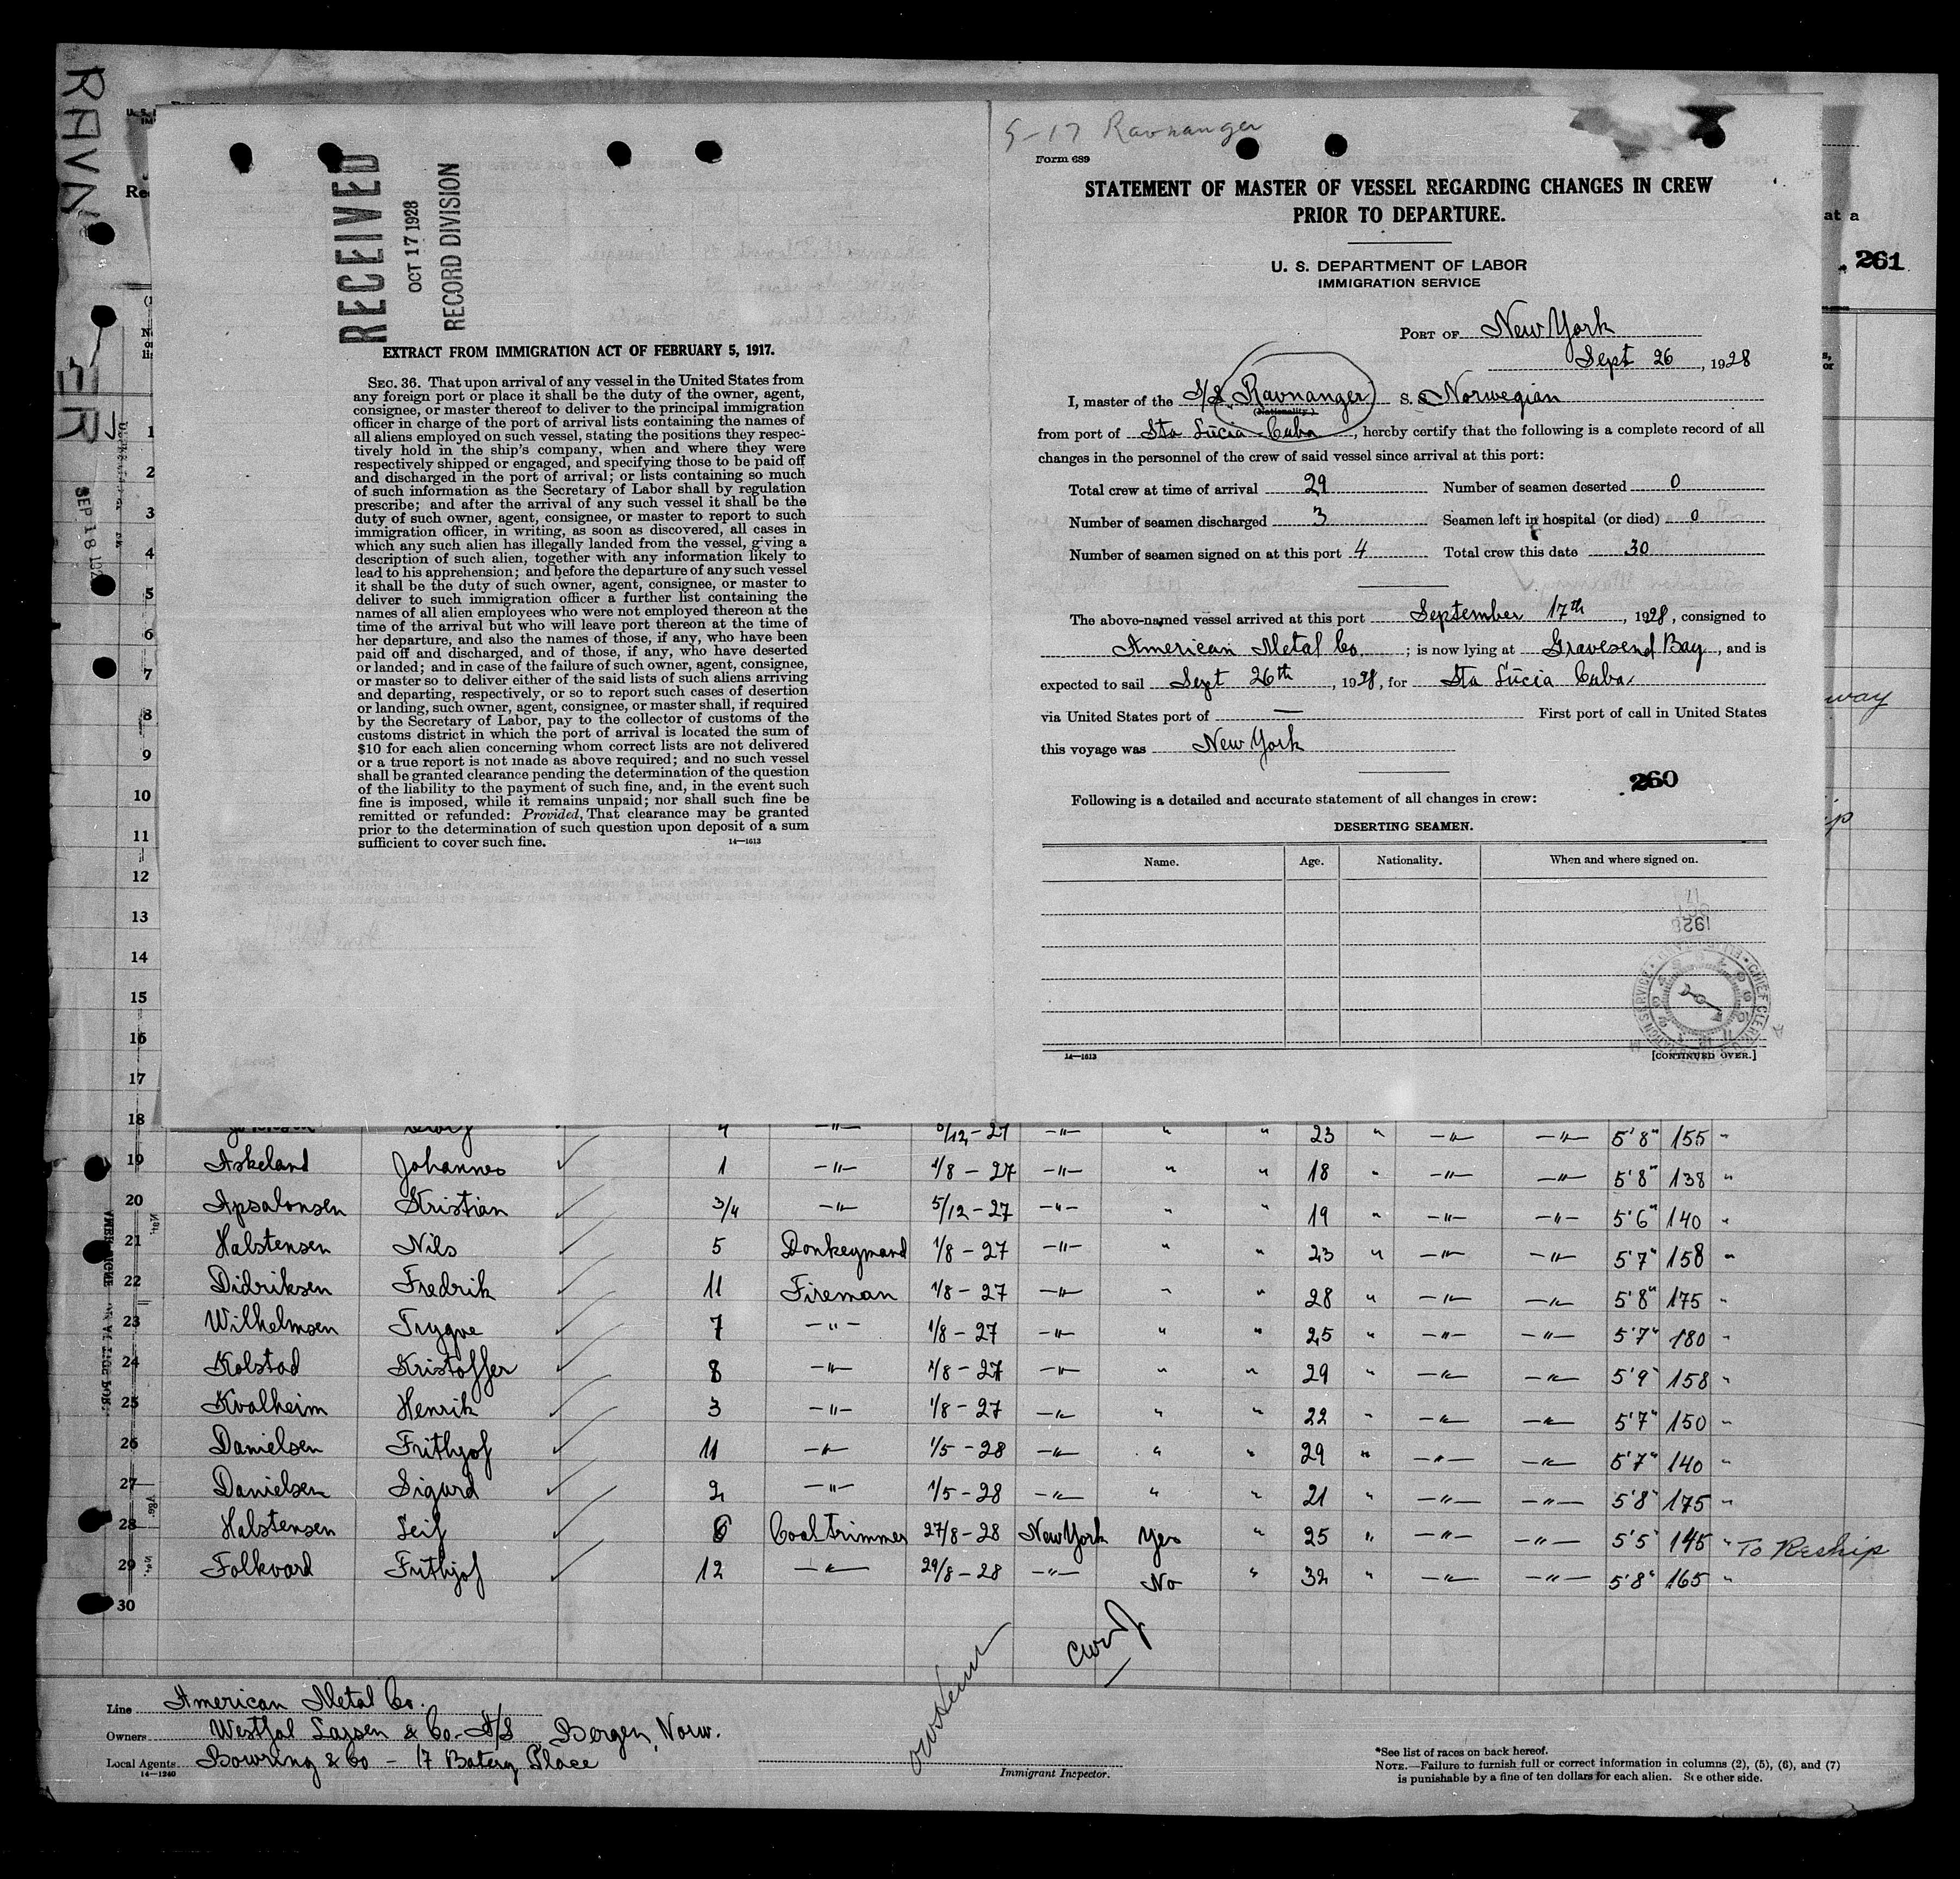 RAVN
ER
SEP 18
RECEIVED
OCT 17 1928
RECORD DIVISION
EXTRACT FROM IMMIGRATION ACT OF FEBRUARY 5, 1917.
SEC. 36. That upon arrival of any vessel in the United States from
any foreign port or place it shall be the duty of the owner, agent,
consignee, or master thereof to deliver to the principal immigration
officer in charge of the port of arrival lists containing the names of
all aliens employed on such vessel, stating the positions they respec-
tively hold in the ship's company, when and where they were
respectively shipped or engaged, and specifying those to be paid off
and discharged in the port of arrival; or lists containing so much
of such information as the Secretary of Labor shall by regulation
prescribe; and after the arrival of any such vessel it shall be the
duty of such owner, agent, consignee, or master to report to such
immigration officer, in writing, as soon as discovered, all cases in
which any such alien has illegally landed from the vessel, giving a
description of such alien, together with any information likely to
lead to his apprehension; and before the departure of any such vessel
it shall be the duty of such owner, agent, consignee, or master to
deliver to such immigration officer a further list containing the
names of all alien employees who were not employed thereon at the
time of the arrival but who will leave port thereon at the time of
her departure, and also the names of those, if any, who have been
paid off and discharged, and of those, if any, who have deserted
or landed; and in case of the failure of such owner, agent, consignee,
or master so to deliver either of the said lists of such aliens arriving
and departing, respectively, or so to report such cases of desertion
or landing, such owner, agent, consignee, or master shall, if required
by the Secretary of Labor, pay to the collector of customs of the
customs district in which the port of arrival is located the sum of
$10 for each alien concerning whom correct lists are not delivered
or a true report is not made as above required; and no such vessel
shall be granted clearance pending the determination of the question
of the liability to the payment of such fine, and, in the event such
fine is imposed, while it remains unpaid; nor shall such fine be
remitted or refunded: Provided, That clearance may be granted
prior to the determination of such question upon deposit of a sum
sufficient to cover such fine. 14—1613
9-17 Ravnanger
Form 689
STATEMENT OF MASTER OF VESSEL REGARDING CHANGES IN CREW
PRIOR TO DEPARTURE.
U. S. DEPARTMENT OF LABOR
IMMIGRATION SERVICE
PORT OF New York
Sept 26, 1928
I, master of the S/S Ravnanger S. S. Norwegian
(Nationality)
from port of Sta Lucia Cuba, hereby certify that the following is a complete record of all
changes in the personnel of the crew of said vessel since arrival at this port:
Total crew at time of arrival 29 Number of seamen deserted 0
Number of seamen discharged 3 Seamen left in hospital (or died) 0
Number of seamen signed on at this port 4 Total crew this date 30
The above-named vessel arrived at this port September 17th, 1928, consigned to
American Metal Co. ; is now lying at Gravesend Bay, and is
expected to sail Sept 26th, 1928, for Sta Lucia Cuba
via United States port of — First port of call in United States
this voyage was New York
260
Following is a detailed and accurate statement of all changes in crew:
DESERTING SEAMEN.
Name. Age. Nationality. When and where signed on.
1928
14—1613 [CONTINUED OVER.]
at a
261
way
ip
1
2
3
4
5
6
7
8
9
10
11
12
13
14
15
16
17
18 4 —"— 5/12-27 —"— " " 23 " —"— —"— 5'8" 155 "
19 Askeland Johannes 1 —"— 1/8-27 —"— " " 18 " —"— —"— 5'8" 138 "
20 Apsalonsen Kristian 3/4 —"— 5/12-27 —"— " " 19 " —"— —"— 5'6" 140 "
21 Halstensen Nils 5 Donkeymand 1/8-27 —"— " " 23 " —"— —"— 5'7" 158 "
22 Didriksen Fredrik 11 Fireman 1/8-27 —"— " " 28 " —"— —"— 5'8" 175 "
23 Wilhelmsen Trygve 7 —"— 1/8-27 —"— " " 25 " —"— —"— 5'7" 180 "
24 Kolstad Kristoffer 8 —"— 1/8-27 —"— " " 29 " —"— —"— 5'9" 158 "
25 Kvalheim Henrik 3 —"— 1/8-27 —"— " " 22 " —"— —"— 5'7" 150 "
26 Danielsen Frithjof 11 —"— 1/5-28 —"— " " 29 " —"— —"— 5'7" 140 "
27 Danielsen Sigurd 2 —"— 1/5-28 —"— " " 21 " —"— —"— 5'8" 175 "
28 Halstensen Leif 6 Coaltrimmer 27/8-28 New York Yes " 25 " —"— —"— 5'5" 145 " To Reship
29 Folkvord Frithjof 12 —"— 29/8-28 —"— No " 32 " —"— —"— 5'8" 165 "
30
Line American Metal Co.
Owners Westfal Larsen & Co. A/S Bergen, Norw.
Local Agents Bowring & Co - 17 Batery Place
14—1240
Immigrant Inspector.
*See list of races on back hereof.
NOTE.—Failure to furnish full or correct information in columns (2), (5), (6), and (7)
is punishable by a fine of ten dollars for each alien. See other side.